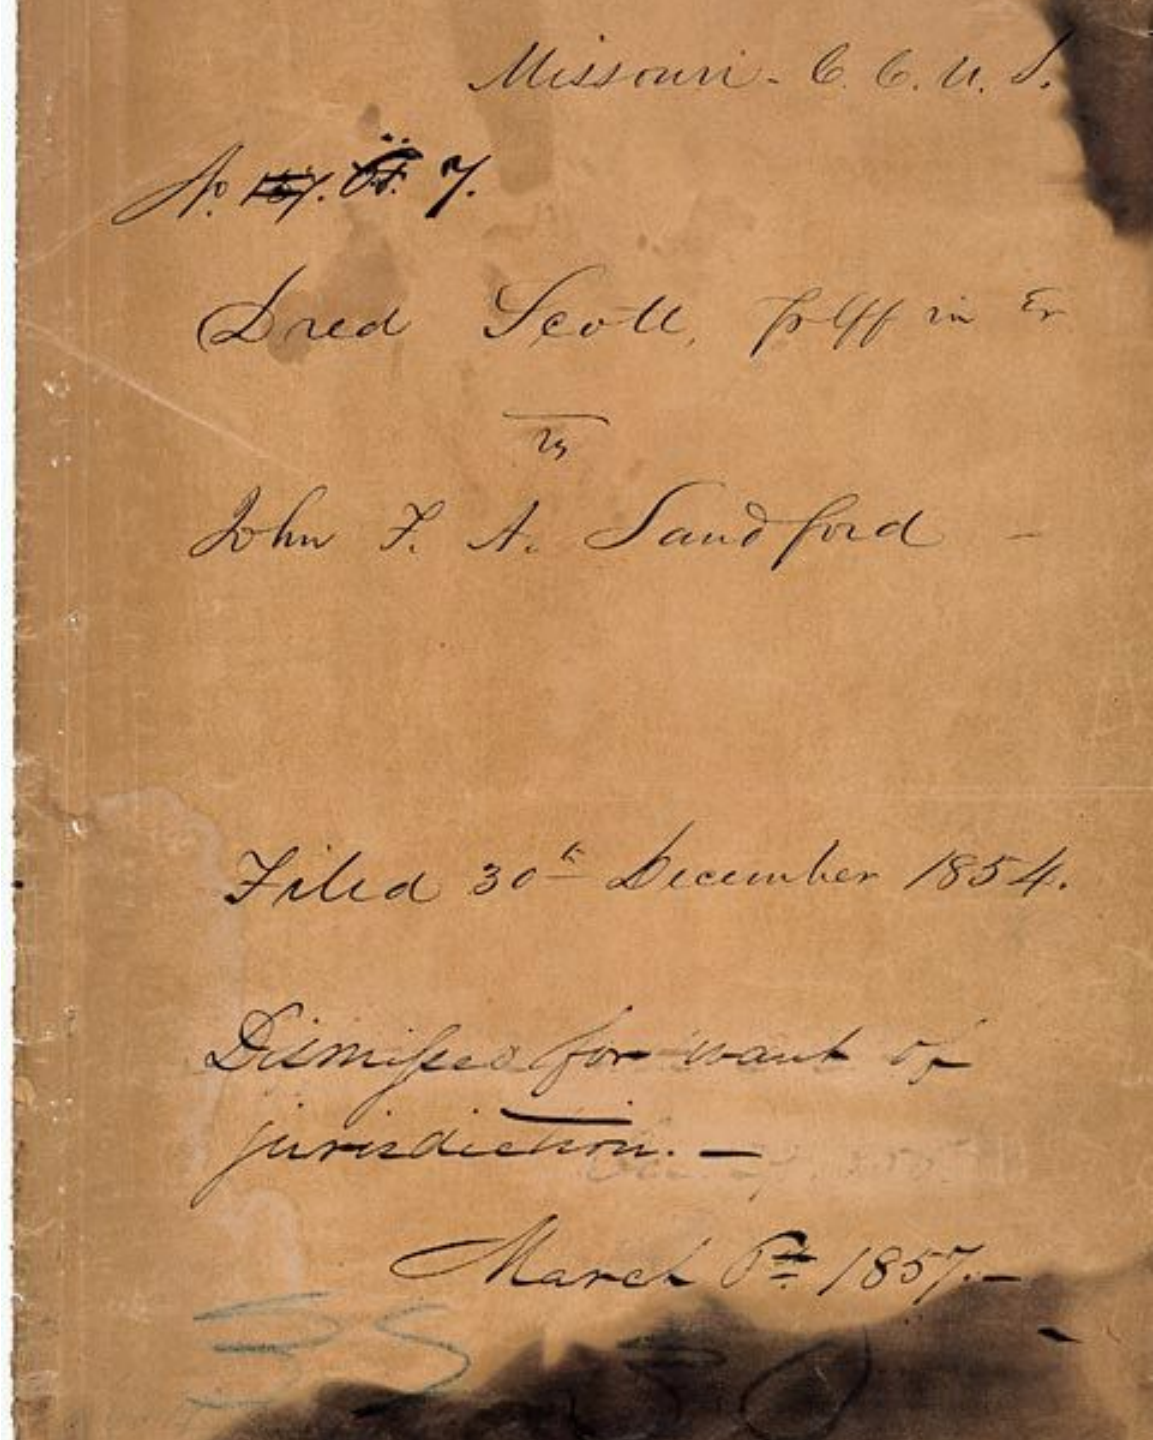 Missouri - C. C. U. S.
No. 7.
Dred Scott, Plff in Er
vs
John F. A. Sandford -
Filed 30th December 1854.
Dismissed for want of
jurisdiction. —
March 6th 1857. —